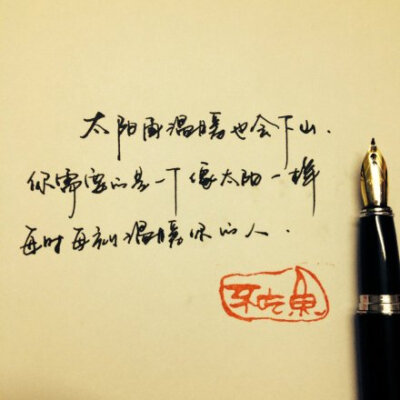 太阳再温暖也会下山.
你需要的是一个像太阳一样
每时每刻温暖你的人.
不吃鱼